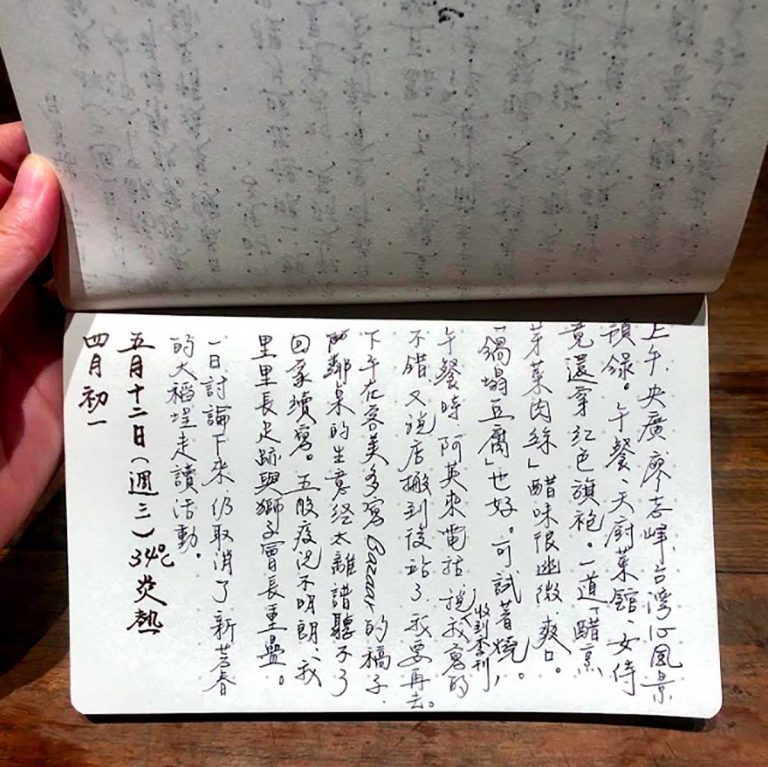 上午、央廣、廖志峰、台灣心風景
預錄。午餐、天廚菜館、女侍
竟還穿紅色旗袍。一道「醋烹
芽菜肉絲」醋味很幽微、爽口。
「鍋塌豆腐」也好。可試著燒。
午餐時阿英來電話、說收到季刊,我寫的
不錯、又說店搬到後站了、我要再去。
下午在客美多寫Bazaar的稿子、
鄰桌的生意經太離譜聽不了
回家續寫。五股疫況不明朗、我
里里長足跡與獅子會長重疊。
一日討論下來仍取消了新芳春
的大稻埕走讀活動。
五月十二日(週三)34℃炎熱
四月初一